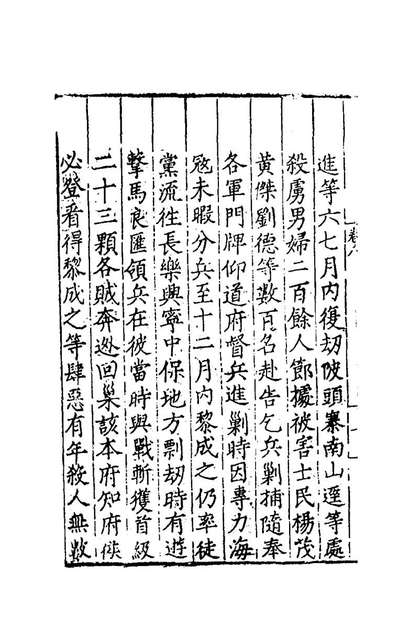 進等六七月内復刼陂頭寨南山逕等處
殺虜男婦二百餘人節據被害士民楊茂
黄傑劉德等數百名赴告乞兵剿捕隨奉
各軍門牌仰道府督兵進剿時因專力海
宼未暇分兵至十二月内黎成之仍率徒
黨流徃長樂興寧中保地方剽刼時有遊
擊馬良匯領兵在彼當時與戰斬獲首級
二十三顆各賊奔逊回巢該本府知府侯
必登看得黎成之等肆惡有年殺人無數
卷八